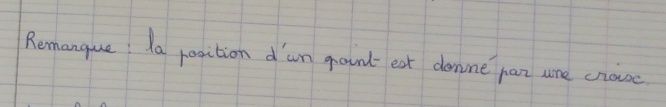 Remarque : la position d'un point est donné par une croix